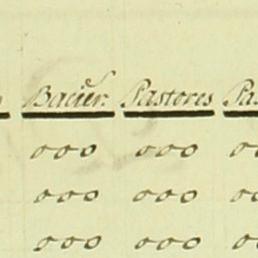 Bacier. Pastores Pas
000 000 00
000 000 00
000 000 00